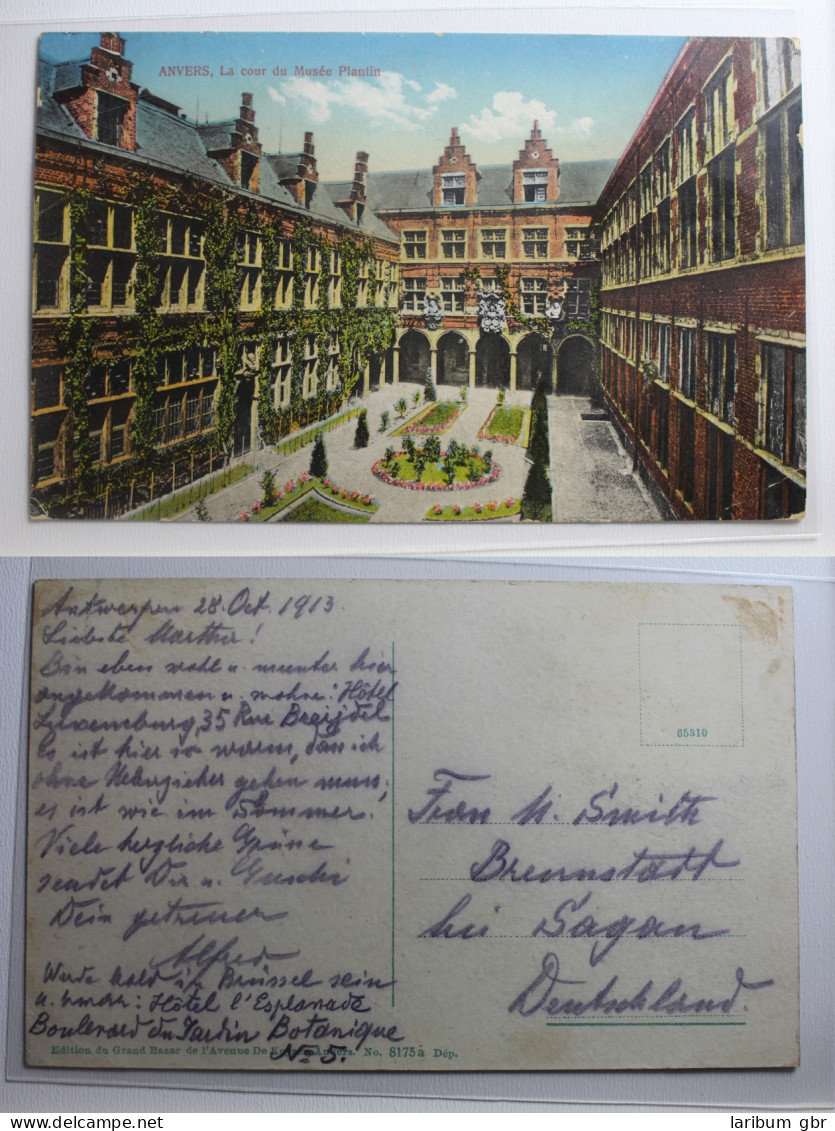 ANVERS, La cour du Musée Plantin
Antwerpen 28. Oct. 1913.
Liebste Martha!
Bin eben wohl u. munter hier
angekommen u. wohne: Hôtel
Luxemburg, 35 Rue Breijdel
Es ist hier so warm, dass ich
ohne Ueberzieher gehen muss;
es ist wie im Sommer.
Viele herzliche Grüsse
sendet Dir u. Guschi
Dein getreuer
Alfred
Werde bald in Brüssel sein
u. zwar: Hôtel l'Esplanade
Boulevard du Jardin Botanique
No 5.
Edition du Grand Bazar de l'Avenue De Anvers. No. 8175a Dép.
65310
Frau M. Smith
Brennstadt
bei Sagan
Deutschland.
laribum gbr